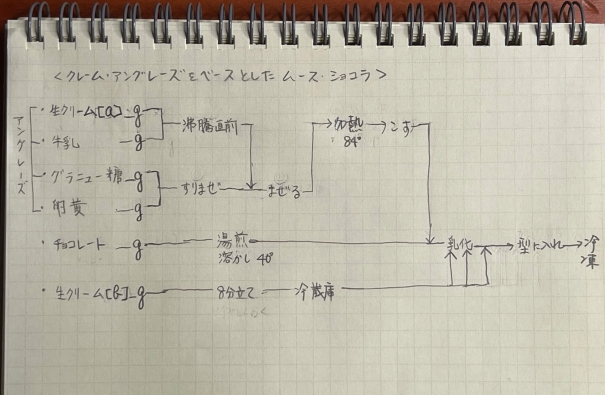 <クレーム・アングレーズをベースとした ムース・ショコラ>
アングレーズ
・生クリーム[a] _g 沸騰直前 → 加熱 → こす
84°
・牛乳 _g
・グラニュー糖 _g すりまぜ まぜる
・卵黄 _g
・チョコレート _g 湯煎 乳化 → 型に入れ → 冷凍
溶かし 40°
・生クリーム[b] _g 8分立て 冷蔵庫